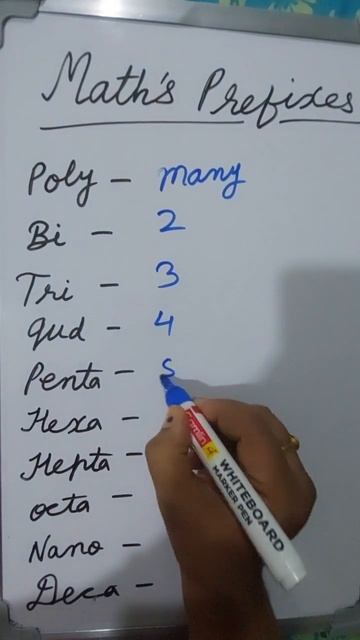 Math's Prefixes
Poly - many
Bi - 2
Tri - 3
qud - 4
Penta - 5
Hexa -
Hepta -
octa -
Nano -
Deca -
camlin
WHITEBOARD
MARKER PEN